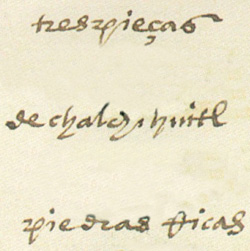 tres pieças
de chalchihuitl
piedras Ricas